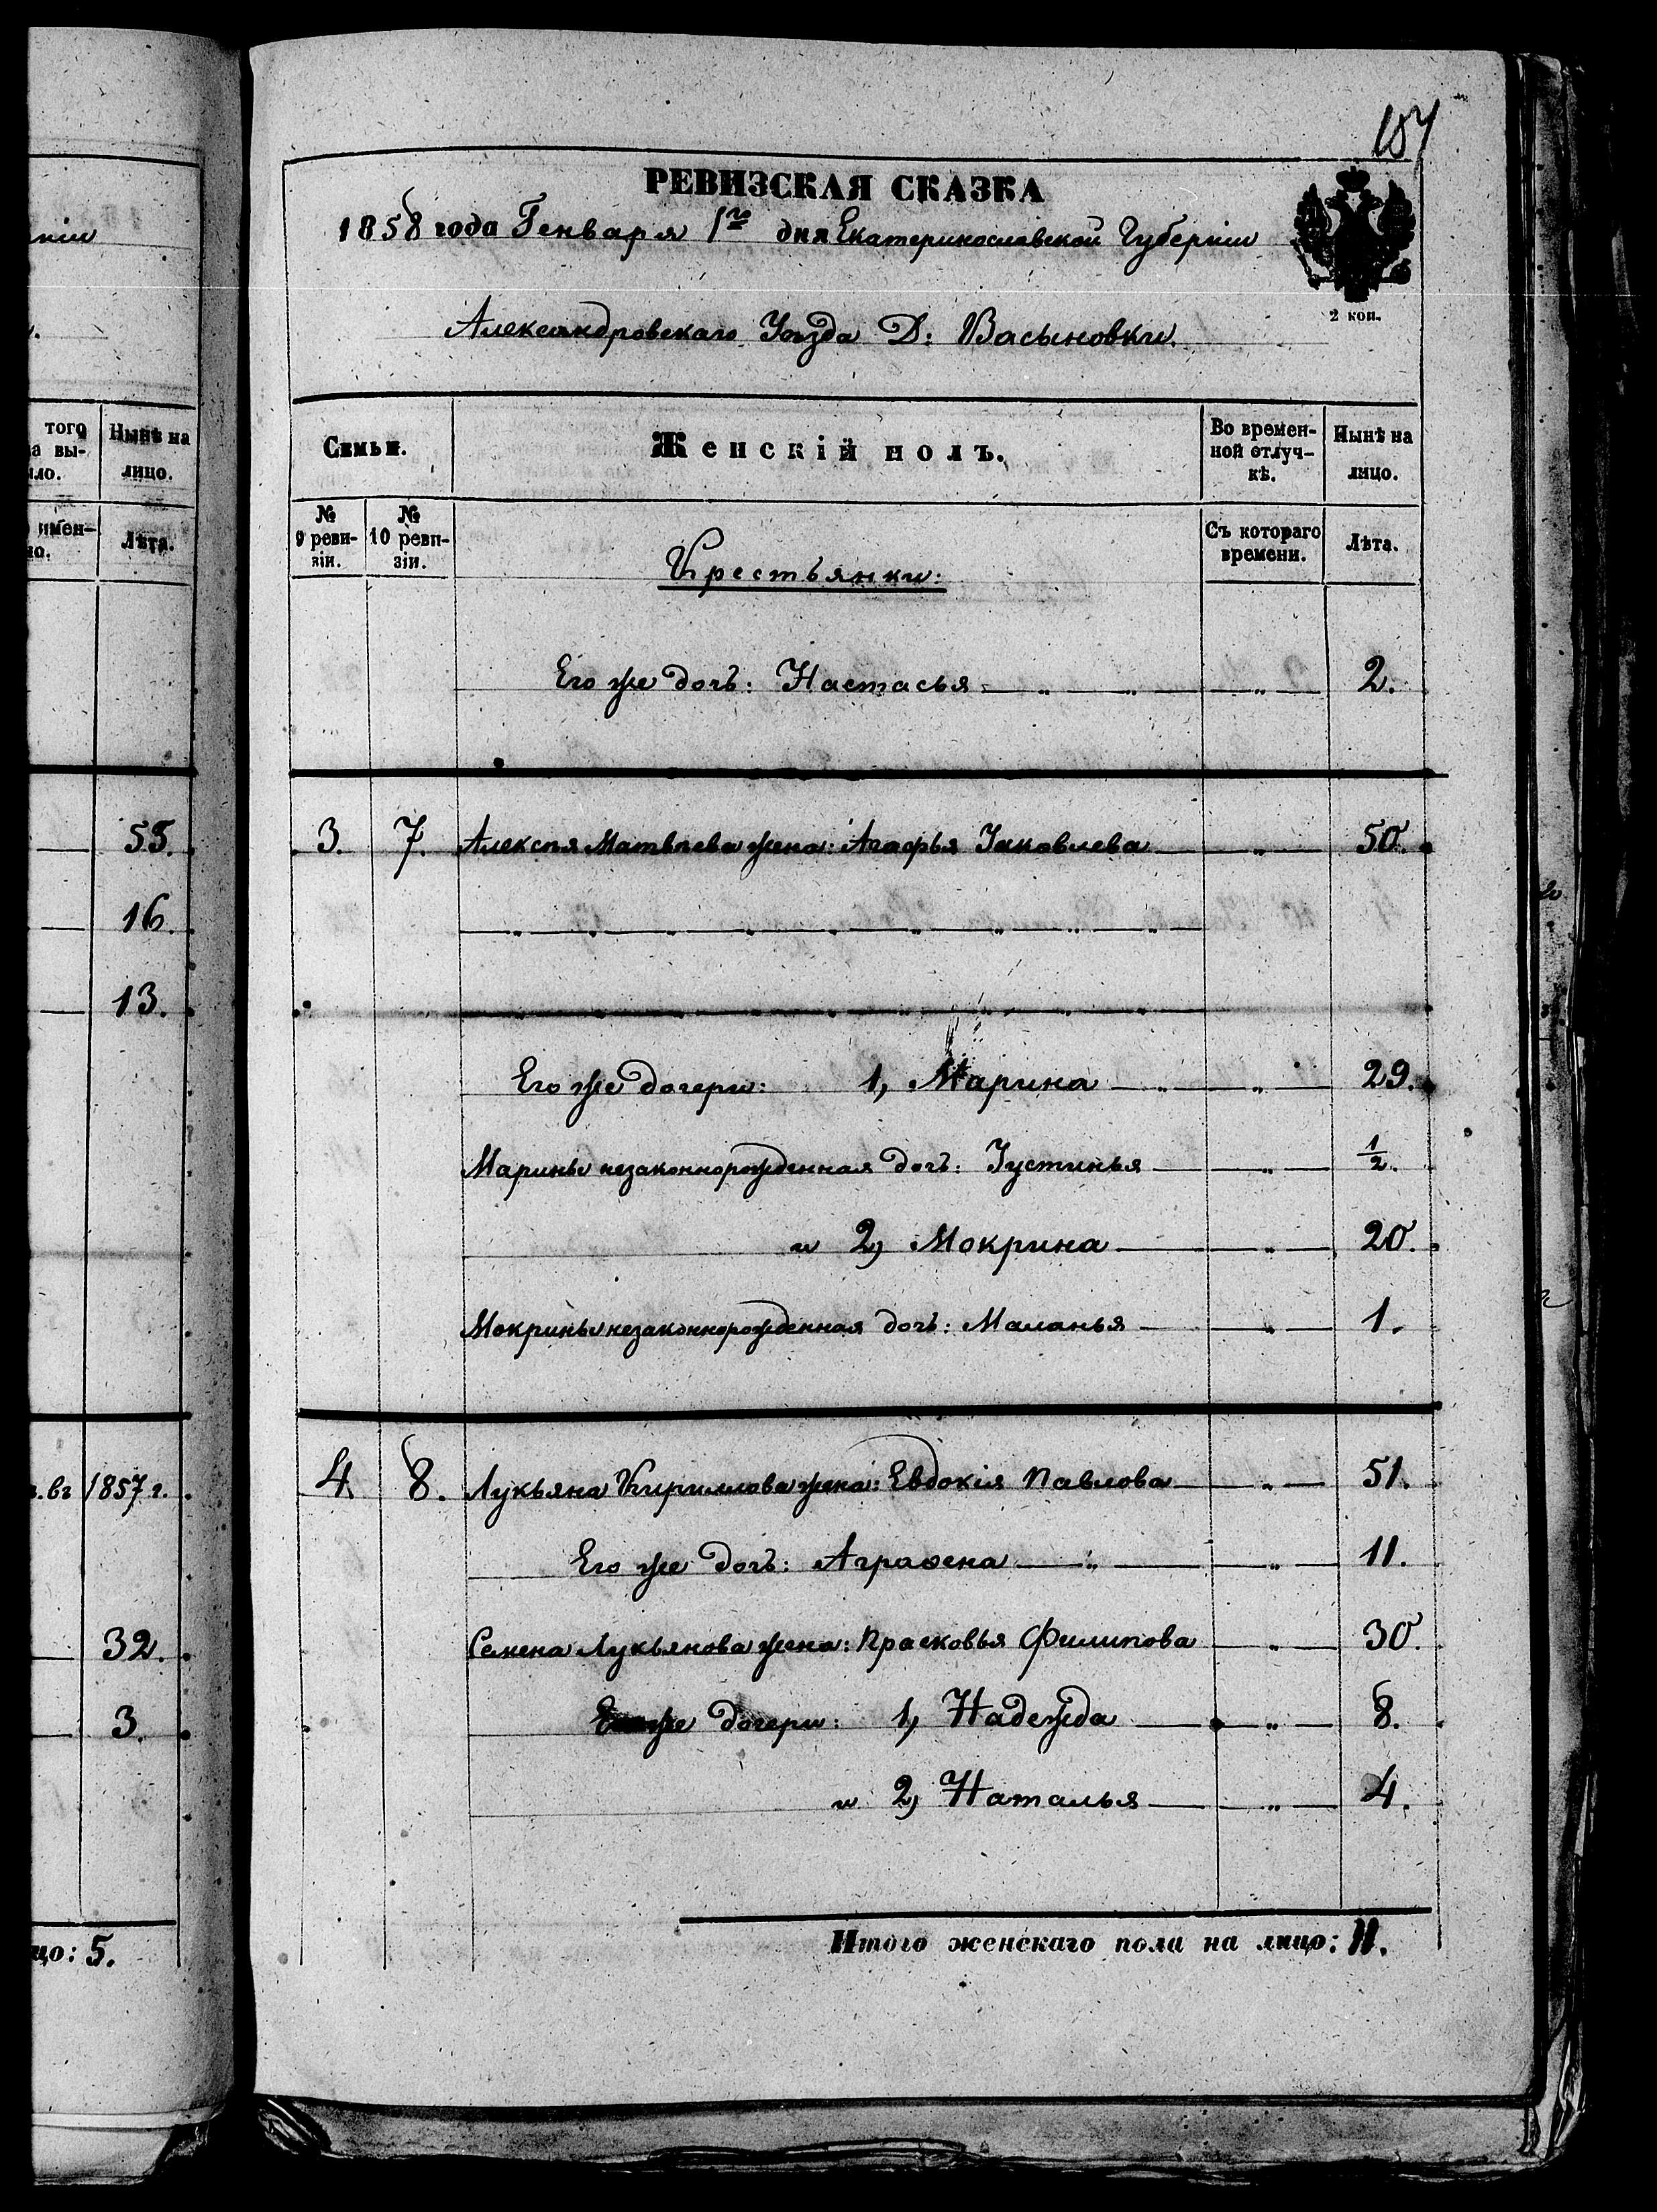 187
РЕВИЗСКАЯ СКАЗКА
1858 года Генваря 1го дня Екатеринославской Губерніи
2 коп.
Александровскаго Уѣзда Д: Васыновки.
Семьи.
Женскій полъ.
Во времен-
ной отлуч-
кѣ.
Нынѣ на
лицо.
№
9 реви-
зіи.
№
10 реви-
зіи.
Крестьянки:
Съ котораго
времени.
Лѣта.
Его же дочь: Настасья 2.
3. 7. Алексѣя Матвѣева жена: Агафья Яковлева 50.
Его же дочери: 1, Марина 29.
Марины незаконнорожденная дочь: Іустинья ½.
и 2, Мокрина 20.
Мокрины незаконнорожденная дочь: Маланья 1.
4. 8. Лукьяна Кирилова жена: Евдокія Павлова 51.
Его же дочь: Аграѳена 11.
Семена Лукьянова жена: Прасковья Филипова 30.
Его же дочери: 1, Надежда 8.
и 2, Наталья 4.
Итого женскаго пола на лицо: 11.
того
вы-
Нынѣ на
лицо.
имен-
Лѣта.
55.
16.
13.
въ 1857 г.
32.
3.
5.